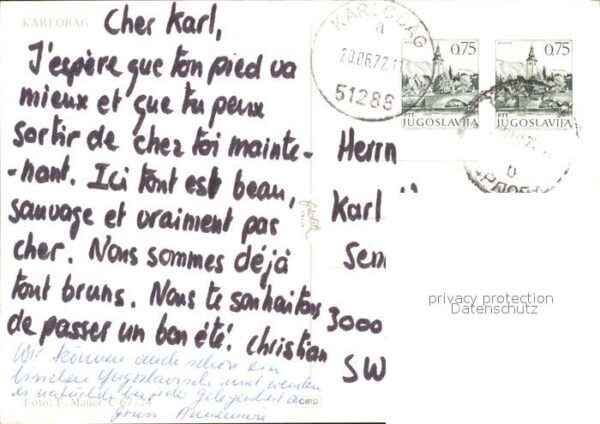 KARLOBAG
Cher Karl,
J'espère que ton pied va
mieux et que tu peux
sortir de chez toi mainte-
-nant. Ici tout est beau,
sauvage et vraiment pas
cher. Nous sommes déjà
tout bruns. Nous te souhaitons
de passer un bon été! Christian
Wir können auch schon ein
bisschen Jugoslavisch und wenden
es natürlich bei jeder Gelegenheit an
Gruss Annemarie
Foto: E. Mauer C 6772
KARLOBAG
a
20.06.72.11
51288
0.75
PTT
JUGOSLAVIJA
0.75
PTT
JUGOSLAVIJA
Herrn
Karl
Sem
3000
SW
privacy protection
Datenschutz